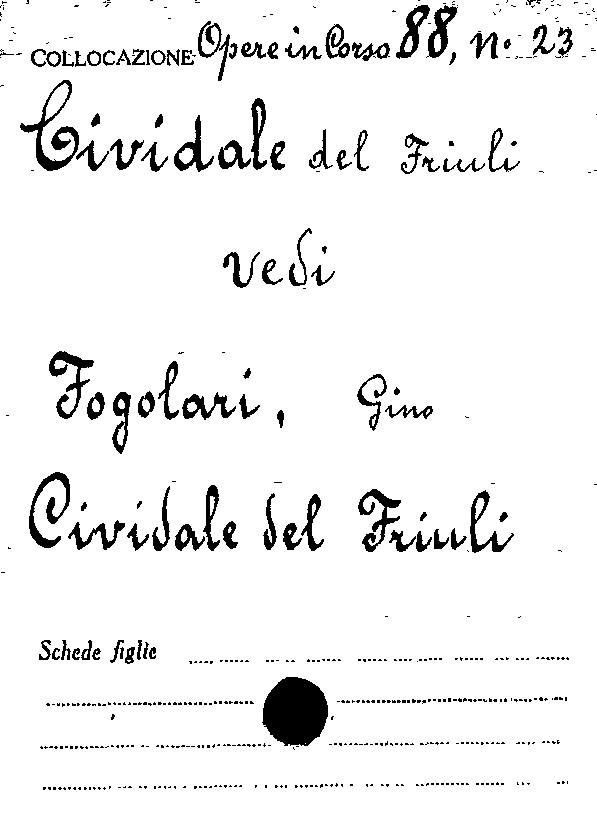 COLLOCAZIONE Opere in Corso 88, n. 23
Cividale del Friuli
vedi
Fogolari, Gino
Cividale del Friuli
Schede figlie